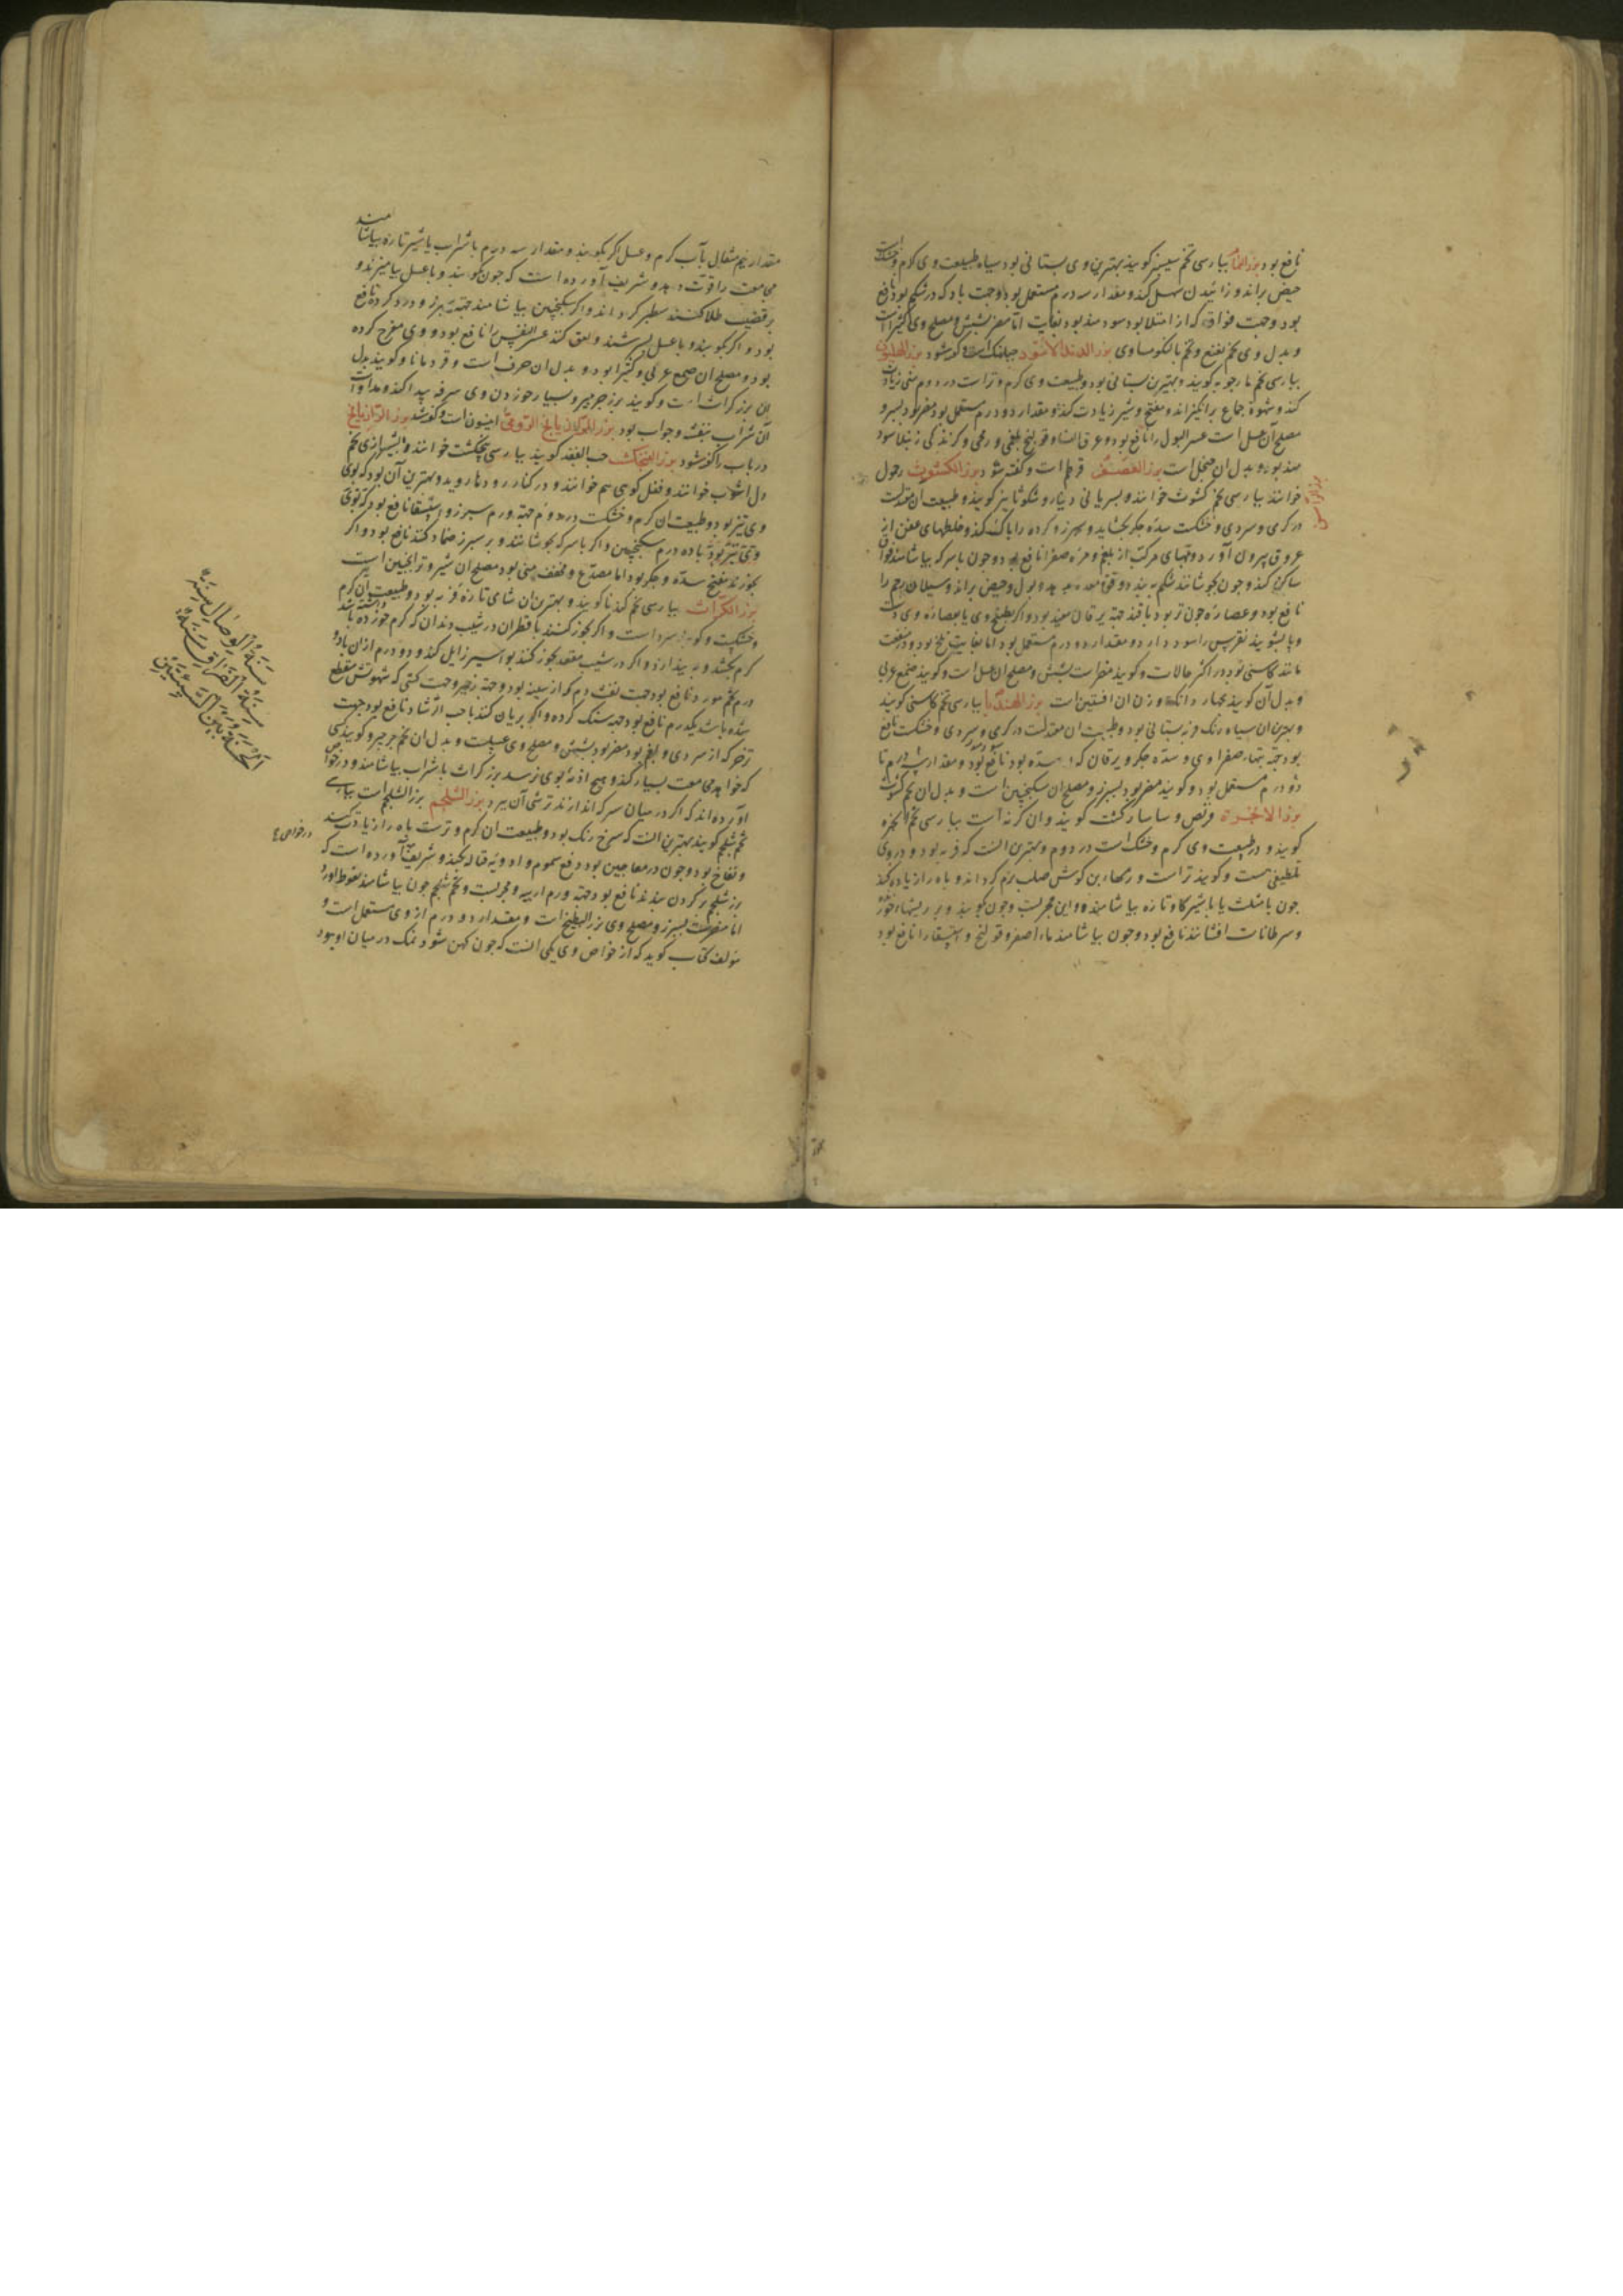 نافع بود بزر النمام بپارسی تخم سیسنبر کویند بهترین وی بستانی بود سیاه طبیعت وی کرم و خشکست
حیض براند و زائیدن سهل کند و مقدار سه درم مستعمل بود و جهت باد که در شکم بود نافع
بود و جهت فواق که از امتلا بود سودمند بود بغایت اما مضر بشش و مصلح وی کثیرا است
و بدل وی تخم نعنع و تخم بالنکو مساوی بزر الهندبا الاسود جبلهنک است و کفته شود بزر الهلیون
بپارسی تخم مارجوبه کویند و بهترین بستانی بود و طبیعت وی کرم و تر است در دوم منی زیادت
کند و شهوة جماع برانکیزاند و مفتح و شیر زیادت کند و مقدار دو درم مستعمل بود و مضر بود بسپرز و
مصلح آن عسل است عسر البول را نافع بود و عرق النسا و قولنج بلغمی و ریحی و کزندکی رتیلا سود
مند بود و بدل ان است بزر العصفر قرطم است و کفته شود بزر الکشوث زحول
خوانند بپارسی تخم کشوث خوانند و بسریانی دینارو شکوثا نیز کویند و طبیعت ان معتدلست
در کرمی و سردی و خشکست سده جکر بکشاید و سپرز و کرده را پاک کند و خلطهای عفن از
عروق بیرون آورد و تبهای مرکب از بلغم و مره صفرا نافع بود و چون با سرکه بیاشامند فواق
ساکن کند و چون بجوشانند شکم ببندد و قوة معده بدهد و بول و حیض براند و سیلان رحم را
نافع بود و عصاره چون تر بود با قند جهة یرقان مفید بود و اکر بطبیخ وی یا بعصاره وی دست
و پا بشویند نقرس را سود دارد و مقدار دو درم مستعمل بود اما بغایت تلخ بود و در منفعت
مانند کاسنی بود در اکثر حالات و کویند مضر است بشش و مصلح ان عسل است و کویند صمغ عربی
و بدل آن کویند بچهار دانک و وزن ان افسنتین است بزر الهندبا بپارسی تخم کاسنی کویند
و بهترین ان سیاه رنک و بستانی بود و طبیعت ان معتدلست در کرمی و سردی و خشکست نافع
بود جهة تبهاء صفراوی و سده جکر و یرقان که از سده بود نافع بود و مقدار درم تا
دو درم مستعمل بود و کویند مضر بود بسپرز و مصلح ان سکنجبین است و بدل ان تخم کشوث
بزر الانجره قریص و ساسارکشت کویند و ان کزنه است بپارسی تخم انجره
کویند و در طبیعت وی کرم و خشک است در دوم و بهترین آنست که فربه بود و در وی
تلطیفی هست و کویند تر است و رمهاء بن کوش صلب نرم کرداند و باه را زیاده کند
چون با مثلث یا با شیر کاو تازه بیاشامند و این مجربست و چون بکوبند و بر ریشهاء خوره
و سرطانات افشانند نافع بود و چون بیاشامند ماء اصفر و قولنج و استسقا را نافع بود
مقدار نیم مثقال بآب کرم و عسل اکر بکوبند و مقدار سه درم با شراب یا شیر تازه بیاشامند
مجامعت را قوت دهد و شریف آورده است که چون بکوبند و با عسل بیامیزند و
بر قضیب طلا کنند سطبر کرداند و اکر بسکنجبین بیاشامند جهة سپرز و درد کرده نافع
بود و اکر بکوبند و با عسل بسرشند و لعق کنند عسر النفس را نافع بود و وی مفرح کرده
بود و مصلح ان صمغ عربی و کثیرا بود و بدل ان حرف است و قردمانا و کویند بدل
ان بزر کراث است و کویند بزر جرجیر و بسیار خوردن وی سرفه پیدا کند و مداوات
آن شراب بنفشه و جواب بود بزر الرازیانج الرومی انیسون است و کفته شد بزر الرازیانج
در باب را کفته شود بزر الفنجنکشت حب الفقد کویند بپارسی پنجنکشت خوانند و بشیرازی تخم
دل اشوب خوانند و فلفل کوهی هم خوانند و در کنار رودها روید و بهترین آن بود که بوی
وی تیز بود و طبیعت ان کرم و خشکست در دوم جهة ورم سپرز و استسقا نافع بود که بوی
وی تیز بود باده درم سکنجبین و اکر با سرکه بجوشانند و بر سپرز ضماد کنند نافع بود و اکر
بخورند مفتح سده و جکر بود اما مصدع و مجفف منی بود مصلح ان شیر و ترانجبین است
بزر الکراث بپارسی تخم کندنا کویند و بهترین ان شامی تازه فربه بود و طبیعت ان کرم
و خشکست و کویند سرد است و اکر بخور کنند با قطران در شیب دندان که کرم خورده باشد
کرم بکشد و بیندازد و اکر در شیب مقعد بخور کنند بواسیر زایل کند و دو درم از ان با دو
درم تخم مورد نافع بود جهت نفث دم که از سینه بود و جهة زحیر و جهت کسی که شهوتش منقطع
شده باشد یکدرم نافع بود جهة سنک کرده و اکر بریان کنند با حب الرشاد نافع بود جهت
زحیر که از سردی و بلغم بود مضر بود بشش و مصلح وی عسلست و بدل ان تخم جرجیر و کویند کسی
که خواهد مجامعت بسیار کند و هیچ اذیة بوی نرسد بزر کراث با شراب بیاشامند و در خواص
آورده اند که اکر در میان سرکه اندازند ترشی آن ببرد بزر الشلجم بزر الشلجم است بپارسی
تخم شلجم کویند بهترین آنست که سرخ رنک بود و طبیعت ان کرم و ترست باه را زیادت کند
و نفاخ بود و چون در معاجین بود دفع سموم و ادویه قتاله بکند و شریف آورده است که
بزر شلجم بر کردن بندند نافع بود جهة ورم اربیه و مجربست و تخم شلجم چون بیاشامند نعوظ آورد
اما مضر است بسپرز و مصلح وی بزر البطیخ است و مقدار دو درم از وی مستعمل است و
مولف کتاب کوید که از خواص وی یکی آنست که چون کهن شود نمک در میان او بود
سنة الوصال سنة
سنة الفراق سنة